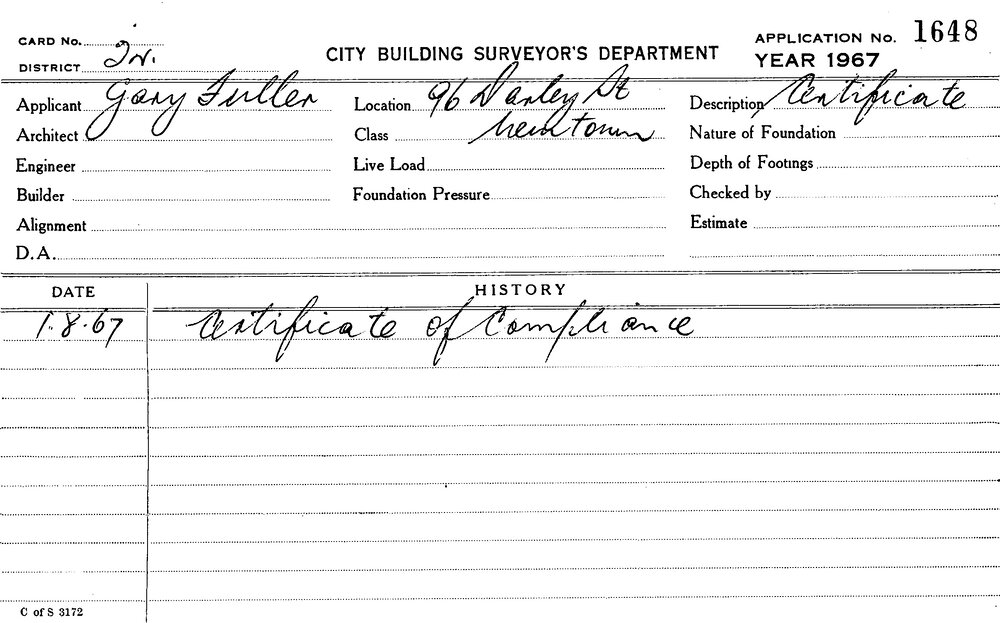 CARD No.
DISTRICT
CITY BUILDING SURVEYOR'S DEPARTMENT
APPLICATION No. 1648
YEAR 1967
Applicant Gary Fuller
Location 96 Darley St
Description Certificate
Architect
Class Newtown
Nature of Foundation
Engineer
Live Load
Depth of Footings
Builder
Foundation Pressure
Checked by
Alignment
Estimate
D.A.
DATE
HISTORY
1.8.67 Certificate of Compliance
C of S 3172